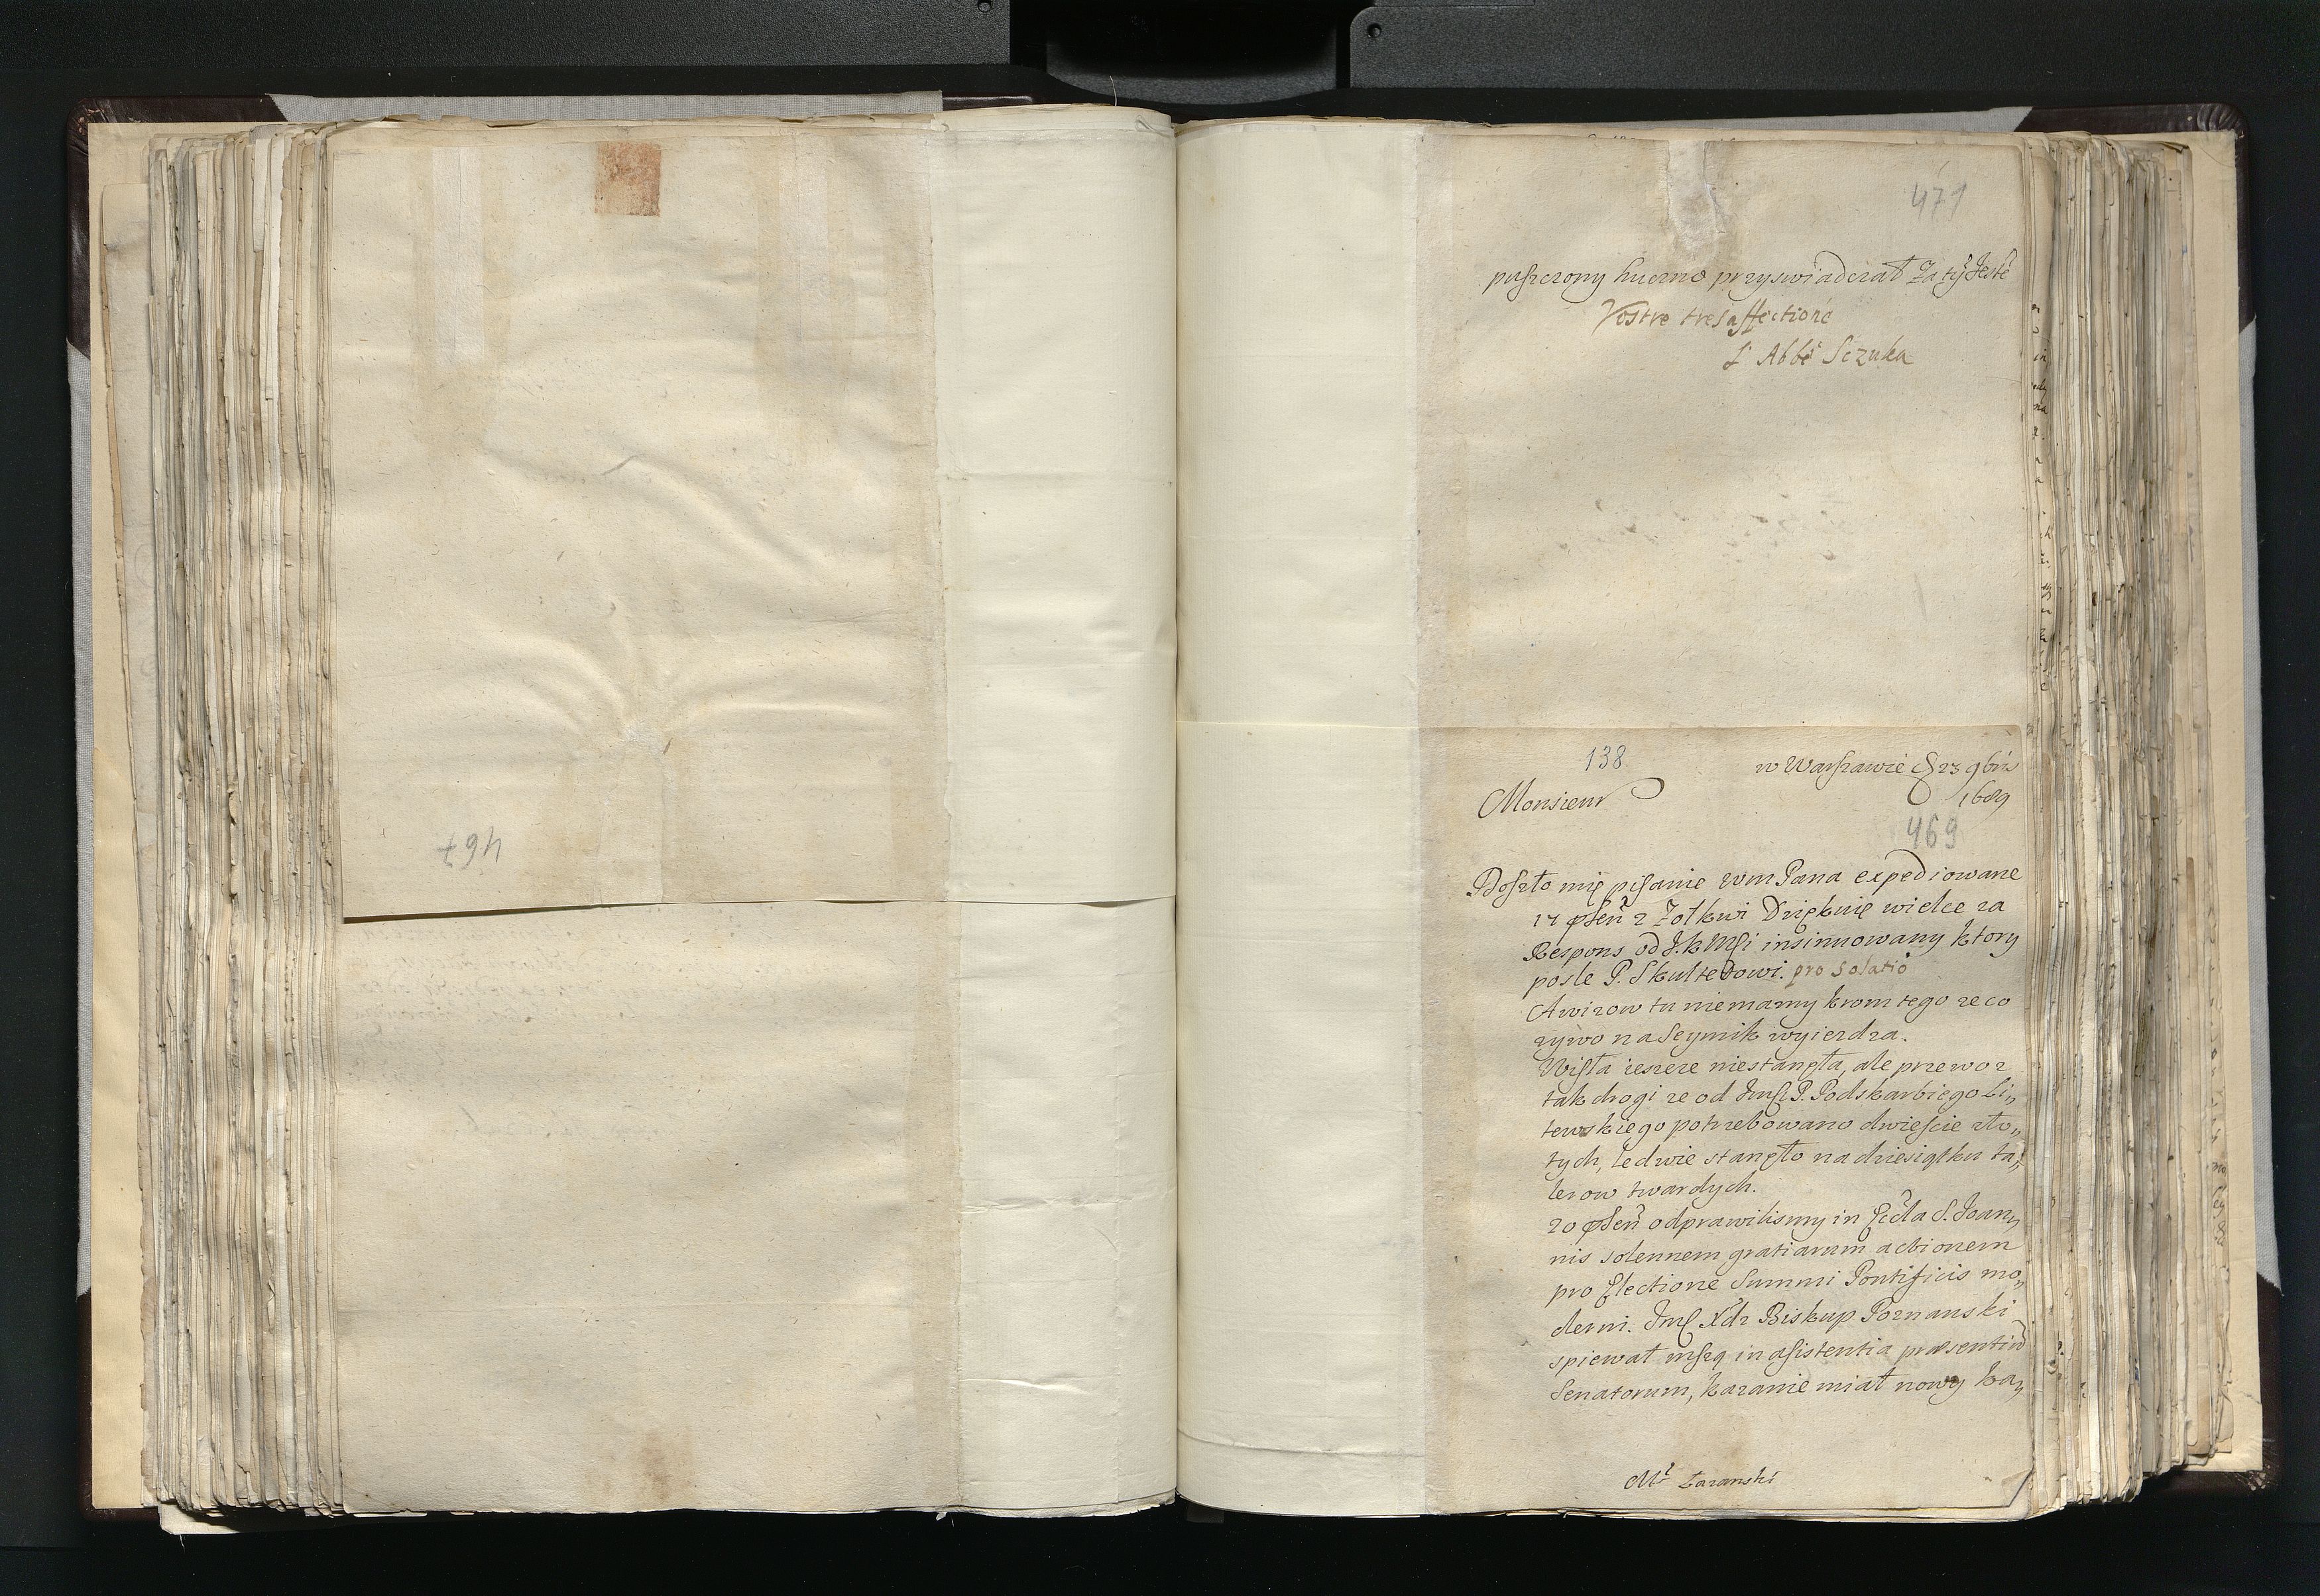 467
471
puszczony huczno przyswiadczał Za tÿ Jesté
Vostre tres affectioné
L'Abbé Sczuka
138.
w Warszawie 23 9bris
1689
Monsieur
469
Doszło mię pisanie wm Pana expediowane
17 psen z Zołkwi Dziękuię wielce za
Respons od J.k Msci insinuowany ktory
posle P. Skultedowi. pro solatio
Awizow tu niemamy krom tego ze co
zywo na Seymik wyiezdza.
Wisła ieszcze niestanęła, ale przewoz
tak drogi ze od Jmsc P. Podskarbiego Li„
tewskiego potrzebowano dwiescie zło„
tych, ledwie stanęło na dziesiątku ta„
lerow twardych.
20 psen odprawilismy in Eccla S. Joan„
nis solennem gratiarum actionem
pro Electione Summi Pontificis mo„
derni. Jmsc Xdz Biskup Poznanski
spiewał mszą in assistentia præsentiũ
Senatorum, kazanie miał nowy ka„
Mr Łazanski